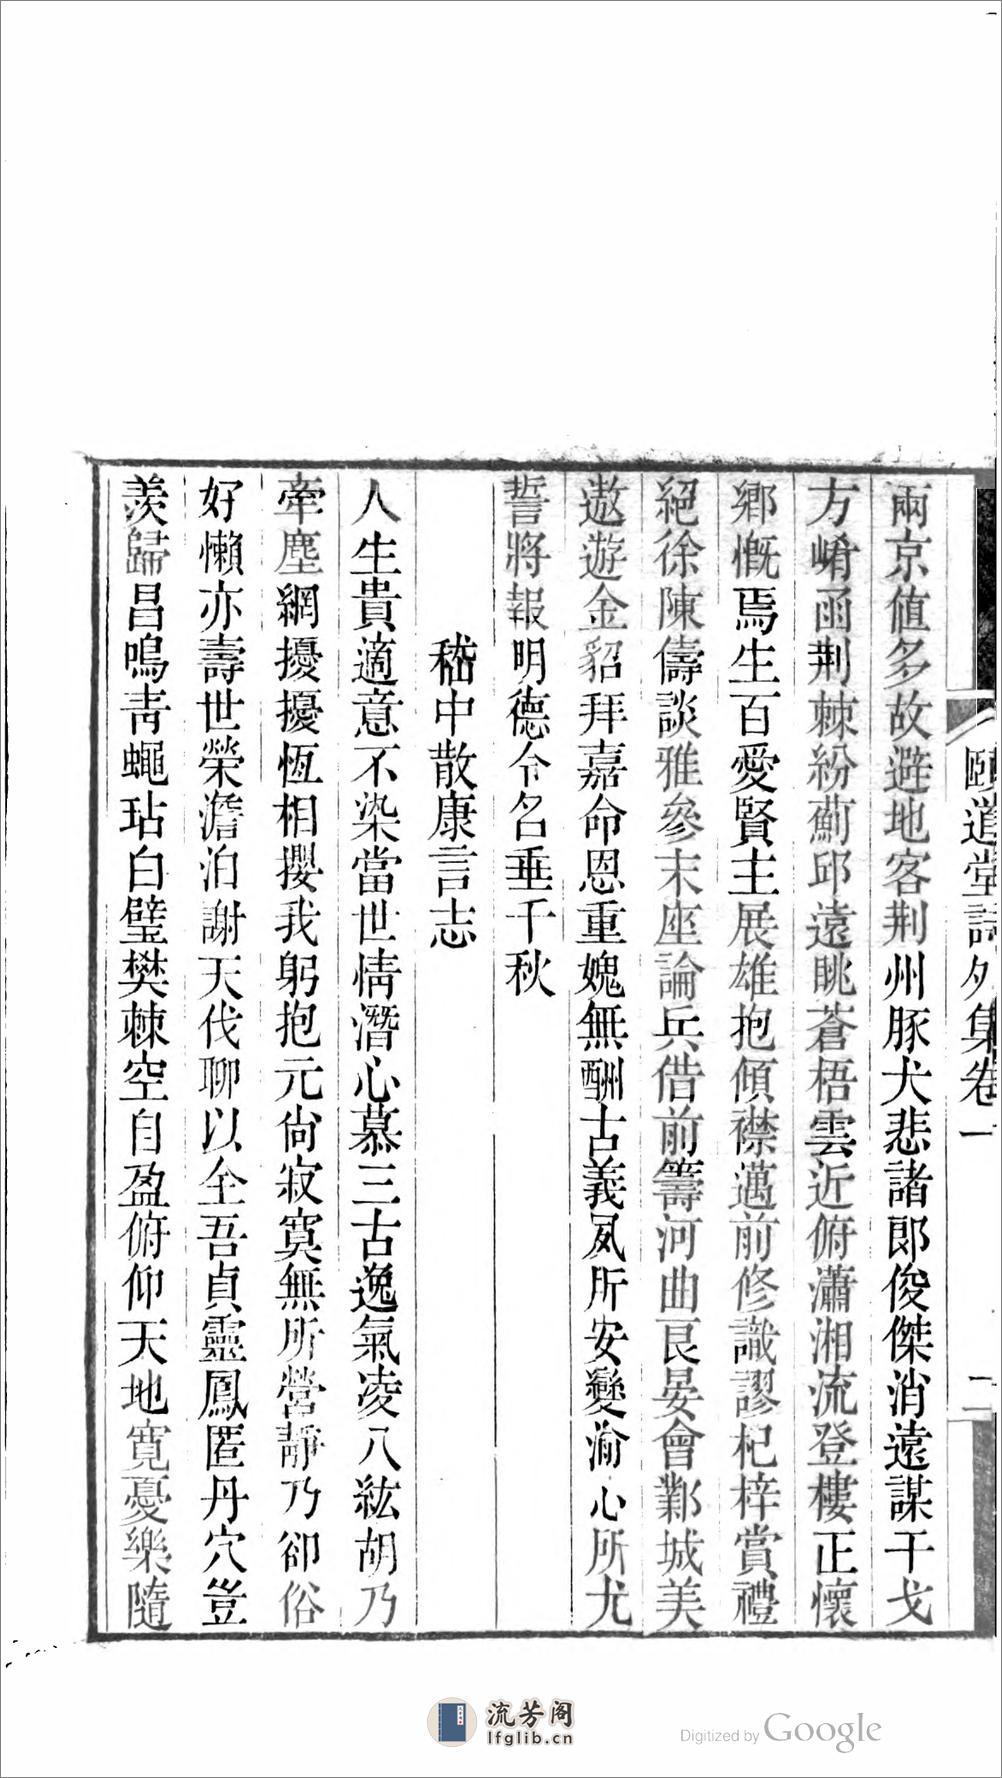 頤道堂詩外集卷一 二
兩京値多故避地客荆州豚犬悲諸郎俊傑消遠謀干戈
方崤函荆棘紛薊邱遠眺蒼梧雲近俯瀟湘流登樓正懷
鄉慨焉生百愛賢主展雄抱傾襟邁前修識謬杞梓賞禮
絕徐陳儔談雅參末座論兵借前籌河曲艮晏會鄴城美
遨遊金貂拜嘉命恩重媿無酬古義夙所安變渝心所尤
誓將報明德令名垂千秋
嵇中散康言志
人生貴適意不染當世情潛心慕三古逸氣凌八紘胡乃
牽塵網擾擾恆相攖我躬抱元尙寂寞無所營靜乃卻俗
好懶亦壽世榮澹泊謝天伐聊以全吾貞靈鳳匿丹穴豈
羨歸昌鳴靑蠅玷白璧樊棘空自盈俯仰天地寬憂樂隨
流芳阁
lfglib.cn
Digitized by Google